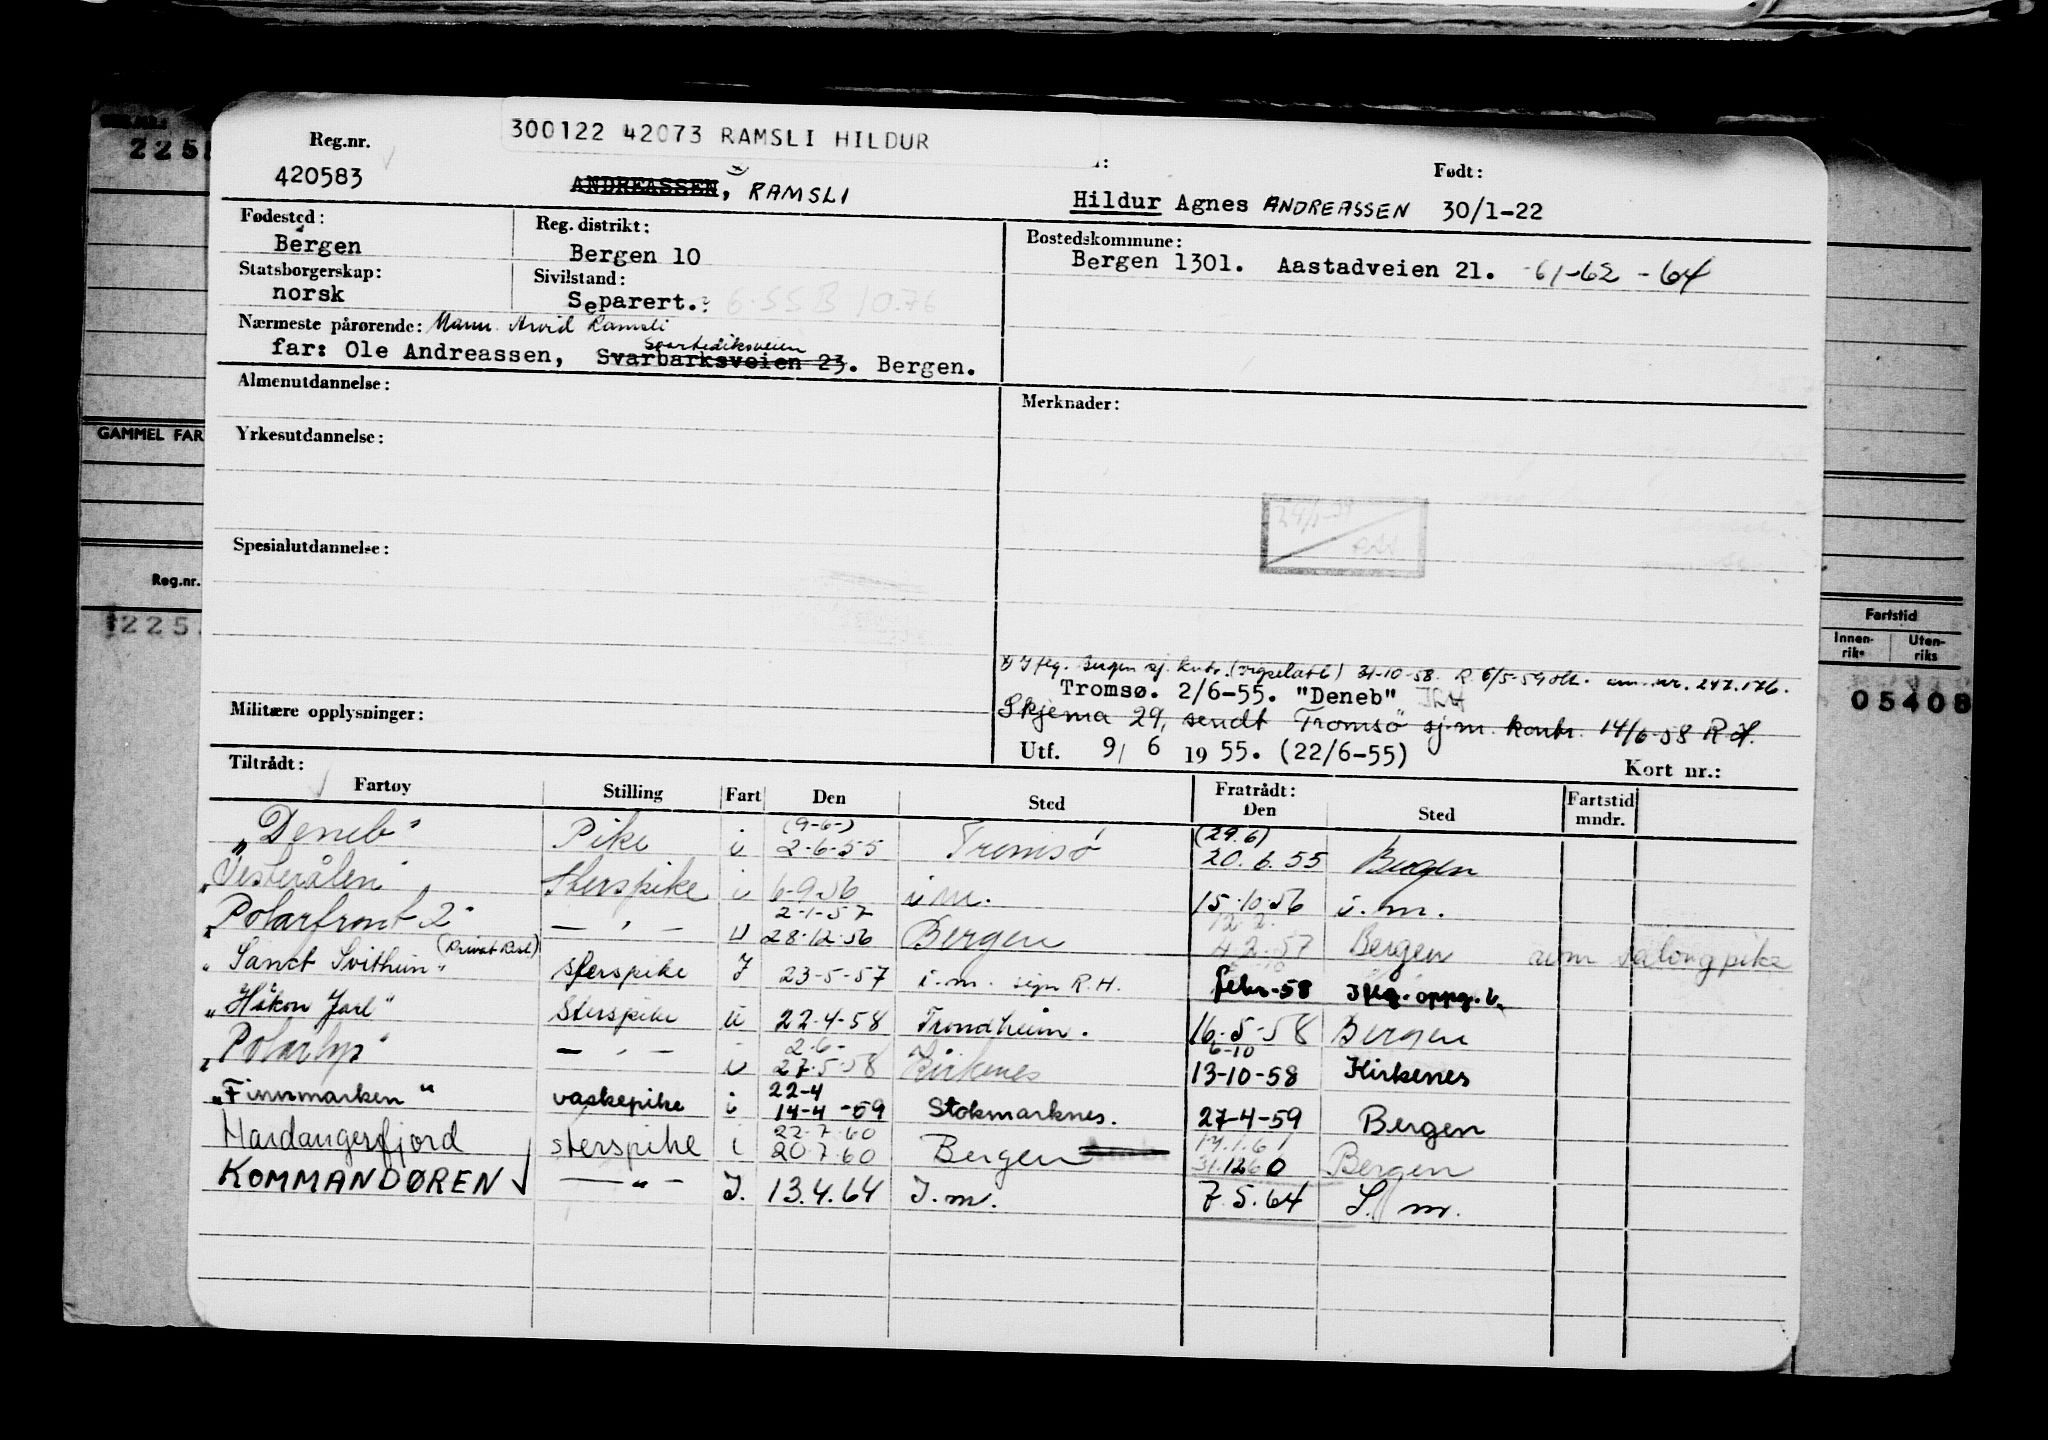 300122 42073 RAMSLI HILDUR
Reg.nr. Født:
420583 ANDREASSEN, RAMSLI Hildur Agnes ANDREASSEN 30/1-22
Fødested: Reg. distrikt: Bostedskommune:
Bergen Bergen 10 Bergen 1301. Aastadveien 21. -61-62-64
Statsborgerskap: Sivilstand:
norsk Separert.
Nærmeste pårørende: Mann Arvid Ramsli
Svartediksveien
far: Ole Andreassen, Svarbarksveien 23. Bergen.
Almenutdannelse: Merknader:
GAMMEL FAR
Yrkesutdannelse:
Spesialutdannelse:
Reg.nr.
225
Fartstid
Innen-riks Uten-riks
05408
x) Iflg. Bergen sj. kntr. 31-10-58. R. 6/5-59 nr. 247.176.
Tromsø. 2/6-55. "Deneb"
Militære opplysninger: Skjema 29, sendt Tromsø sj.m. kontr. 14/6-58 R.H.
Utf. 9/ 6 1955. (22/6-55)
Tiltrådt: Kort nr.:
Fartøy Stilling Fart Den Sted Fratrådt: Den Sted Fartstid mndr.
(9-6-) (29.6)
"Deneb" Pike i 2-6-55 Tromsø 20.6.55 Bergen
"Vesterålen" Sterspike i 6-9-56 i.m. 15.10.56 i.m.
2-1-57 12.2.
"Polarfront 2" — " — U 28.12.56 Bergen 4.2.57 Bergen som salongpike
"Sanct Svithun" (Privat Rest) Sterspike I 23-5-57 i.m. sign R.H. febr-58 Iflg. oppg. b.
"Håkon Jarl" Sterspike i 22-4-58 Trondheim. 16-5-58 Bergen
2-6- 6-10
"Polarlys" — " — i 27-5-58 Kirkenes 13-10-58 Kirkenes
22-4
"Finnmarken" vaskepike i 14-4-59 Stokmarknes. 27-4-59 Bergen
22.7.60 14.1.61
Hardangerfjord sterspike i 20.7.60 Bergen 31.12.60 Bergen
KOMMANDØREN — " — I. 13.4.64 I.m. 7.5.64 I.m.